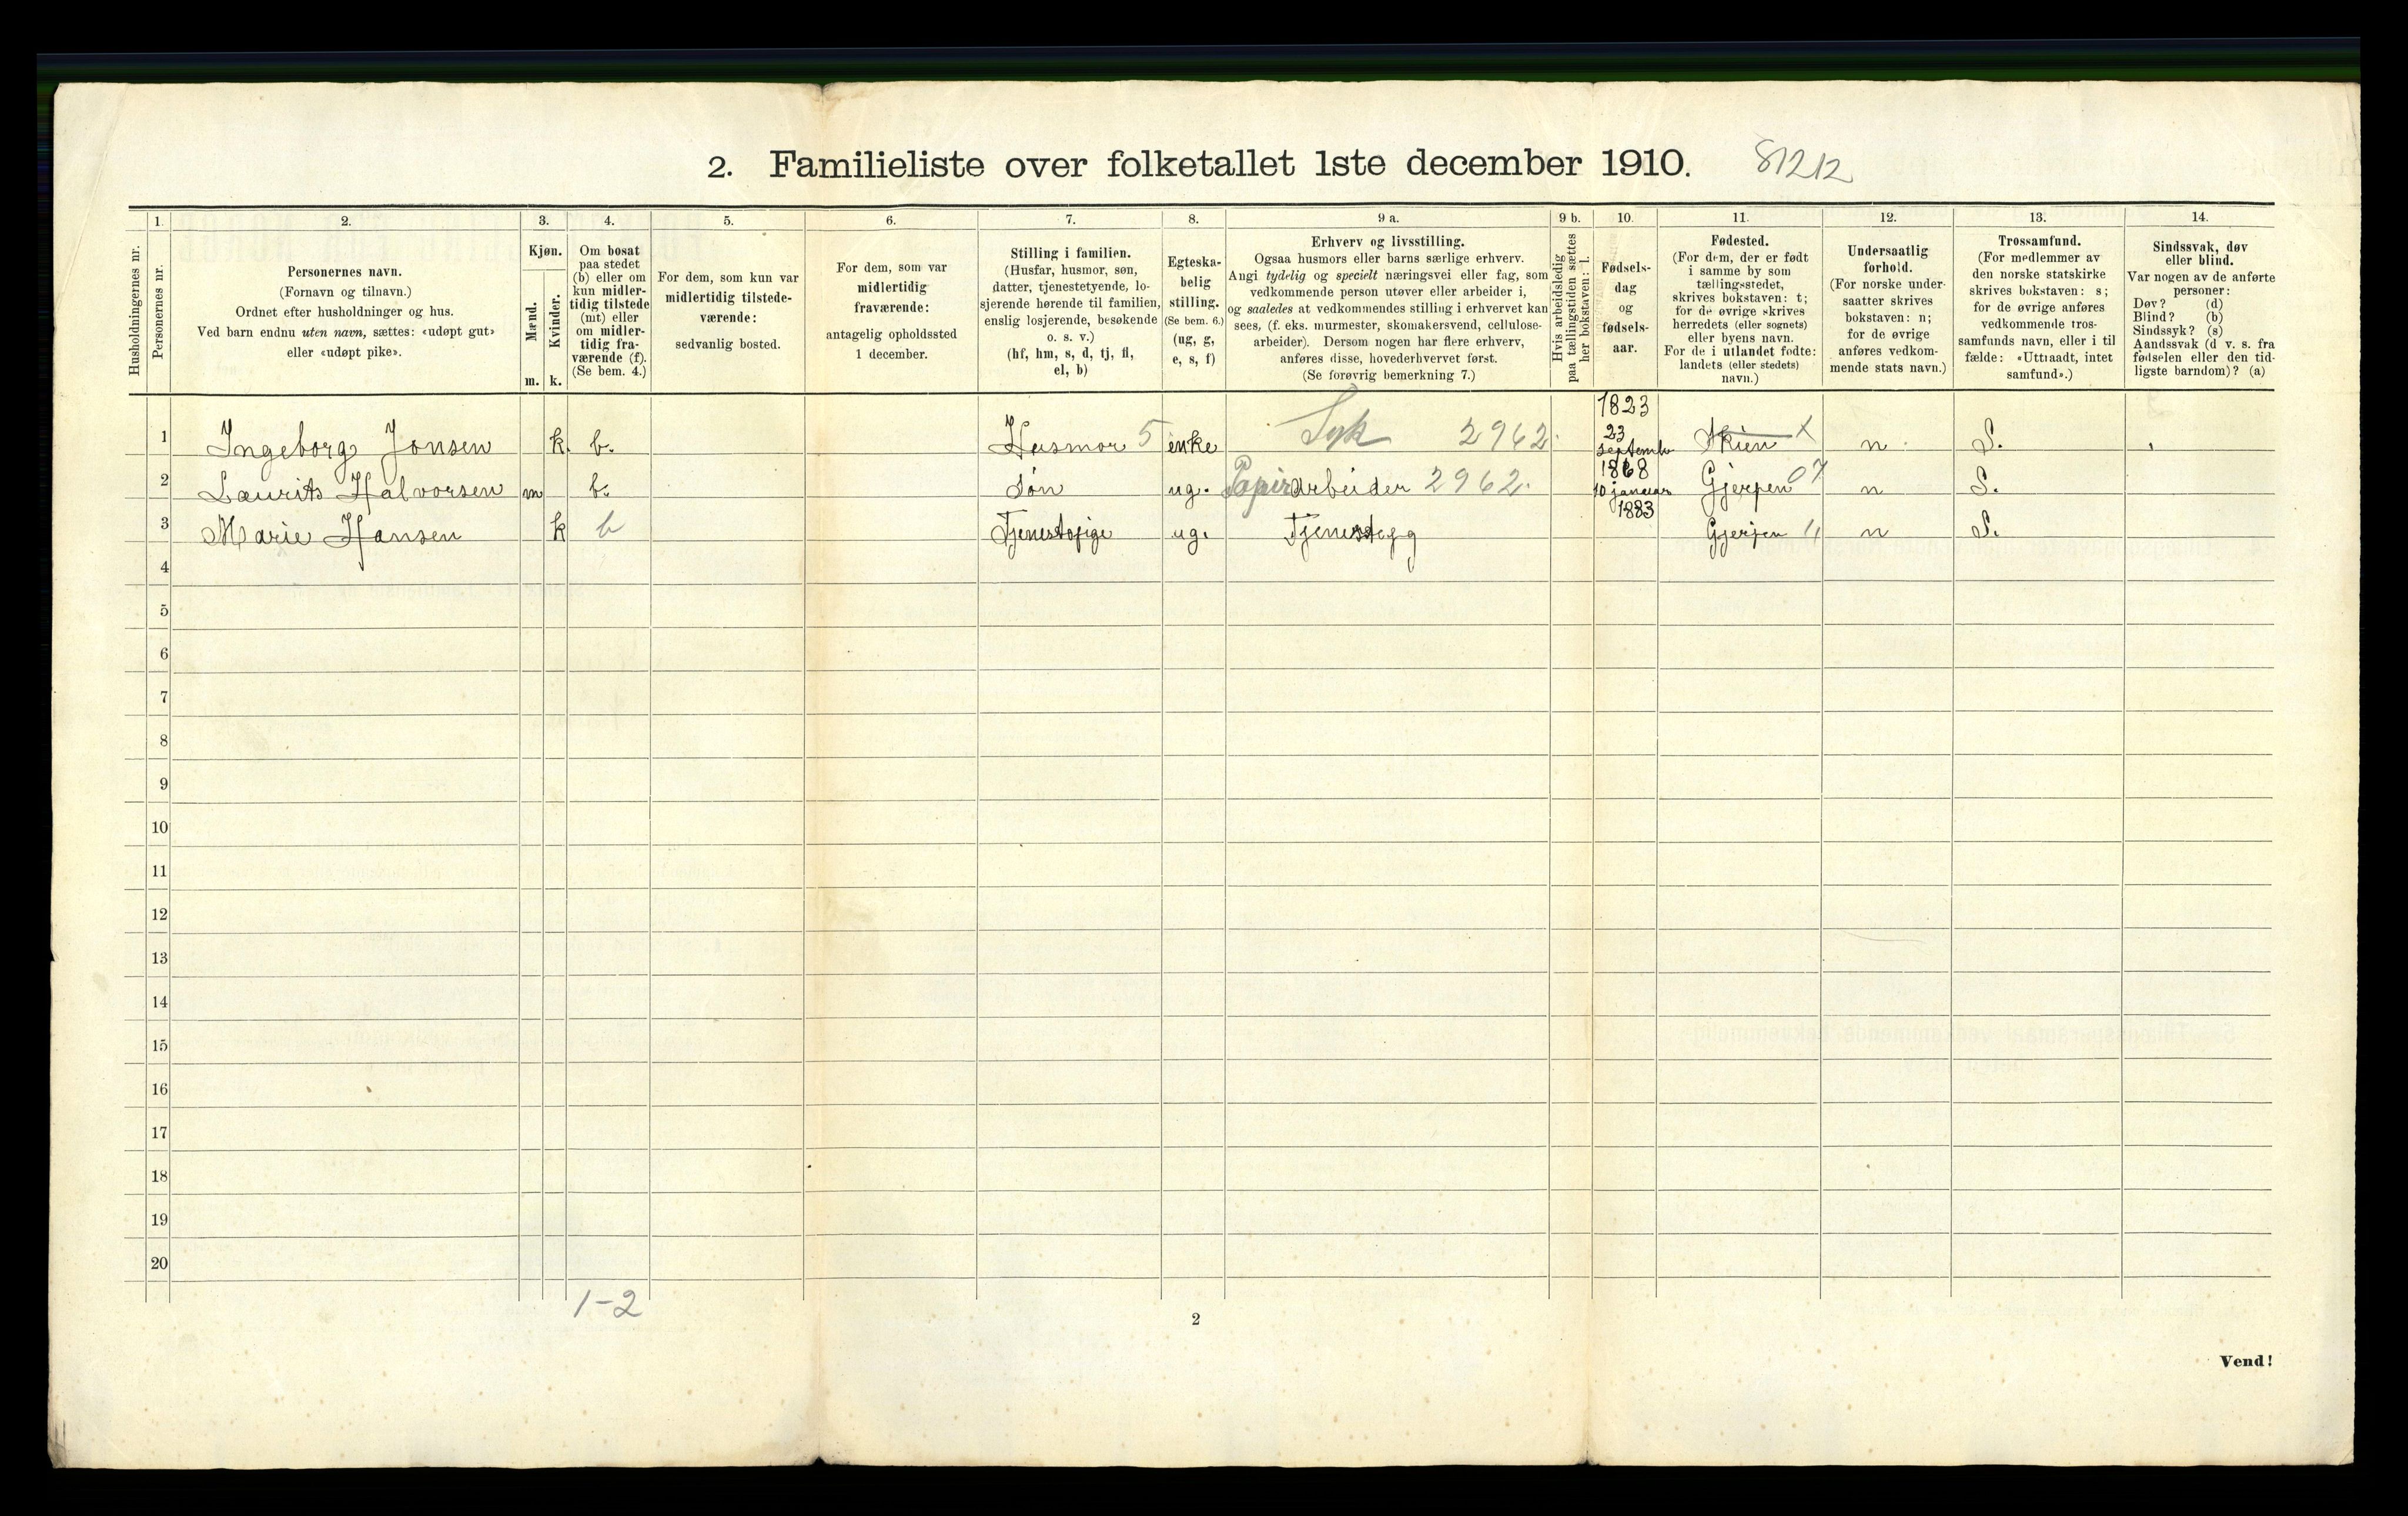 2. Familieliste over folketallet 1ste december 1910. 81212
1. 2. 3. 4. 5. 6. 7. 8. 9 a. 9 b. 10. 11. 12. 13. 14.
Husholdningernes nr.
Personernes nr.
Personernes navn.
(Fornavn og tilnavn.)
Ordnet efter husholdninger og hus.
Ved barn endnu uten navn, sættes: «udøpt gut»
eller «udøpt pike».
Kjøn.
Mænd.
Kvinder.
m. k.
Om bosat
paa stedet
(b) eller om
kun midler-
tidig tilstede
(mt) eller
om midler-
tidig fra-
værende (f).
(Se bem. 4.)
For dem, som kun var
midlertidig tilstede-
værende:
sedvanlig bosted.
For dem, som var
midlertidig
fraværende:
antagelig opholdssted
1 december.
Stilling i familien.
(Husfar, husmor, søn,
datter, tjenestetyende, lo-
sjerende hørende til familien,
enslig losjerende, besøkende
o. s. v.)
(hf, hm, s, d, tj, fl,
el, b)
Egteska-
belig
stilling.
(Se bem. 6.)
(ug, g,
e, s, f)
Erhverv og livsstilling.
Ogsaa husmors eller barns særlige erhverv.
Angi tydelig og specielt næringsvei eller fag, som
vedkommende person utøver eller arbeider i,
og saaledes at vedkommendes stilling i erhvervet kan
sees, (f. eks. murmester, skomakersvend, cellulose-
arbeider). Dersom nogen har flere erhverv,
anføres disse, hovederhvervet først.
(Se forøvrig bemerkning 7.)
Hvis arbeidsledig
paa tællingstiden sættes
her bokstaven: l.
Fødsels-
dag
og
fødsels-
aar.
Fødested.
(For dem, der er født
i samme by som
tællingsstedet,
skrives bokstaven: t;
for de øvrige skrives
herredets (eller sognets)
eller byens navn.
For de i utlandet fødte:
landets (eller stedets)
navn.)
Undersaatlig
forhold.
(For norske under-
saatter skrives
bokstaven: n;
for de øvrige
anføres vedkom-
mende stats navn.)
Trossamfund.
(For medlemmer av
den norske statskirke
skrives bokstaven: s;
for de øvrige anføres
vedkommende tros-
samfunds navn, eller i til
fælde: «Uttraadt, intet
samfund».)
Sindssvak, døv
eller blind.
Var nogen av de anførte
personer:
Døv? (d)
Blind? (b)
Sindssyk? (s)
Aandssvak (d v. s. fra
fødselen eller den tid-
ligste barndom)? (a)
1 Ingeborg Jonsen k. b. Husmor 5 enke Syk 2962. 1823 23 septemb Skien X n. S.
2 Laurits Halvorsen m b. Søn ug. Papirarbeider 2962. 1868 10 januar Gjerpen 07 n S.
3 Marie Hansen k b Tjenestepige ug. Tjenestepg 1883 Gjerpen 11 n S.
4
5
6
7
8
9
10
11
12
13
14
15
16
17
18
19
20
1-2
2
Vend!